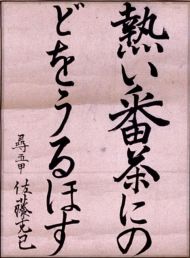 熱い番茶にの
どをうるほす
尋五甲 佐藤克巳